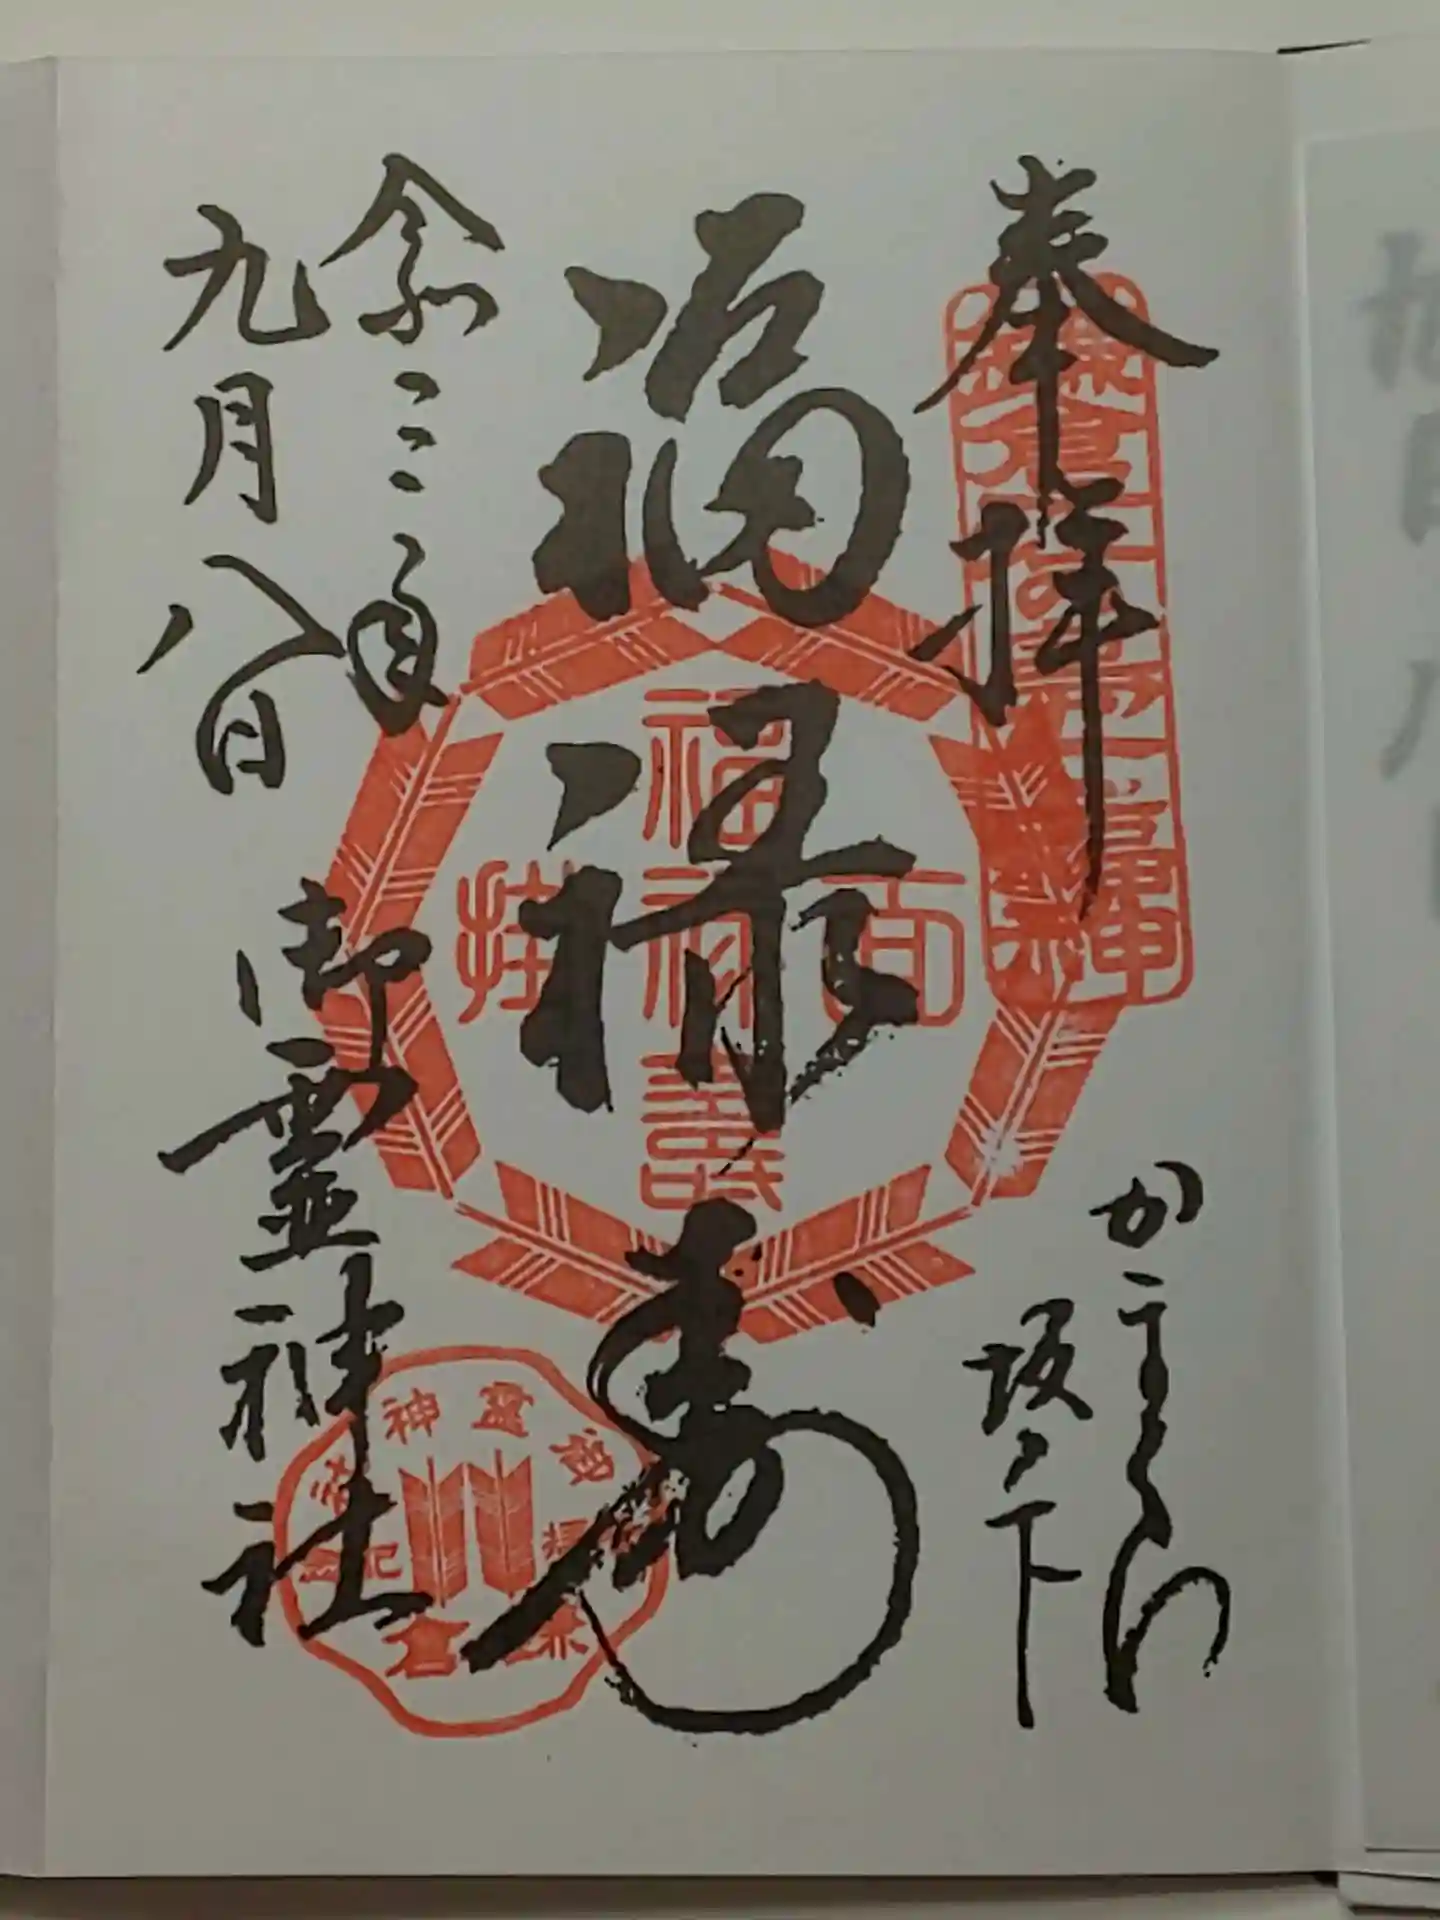 奉拝
かまくら
坂ノ下
福禄寿
令和三年
九月八日
御霊神社
福禄寿
面掛
鎌倉